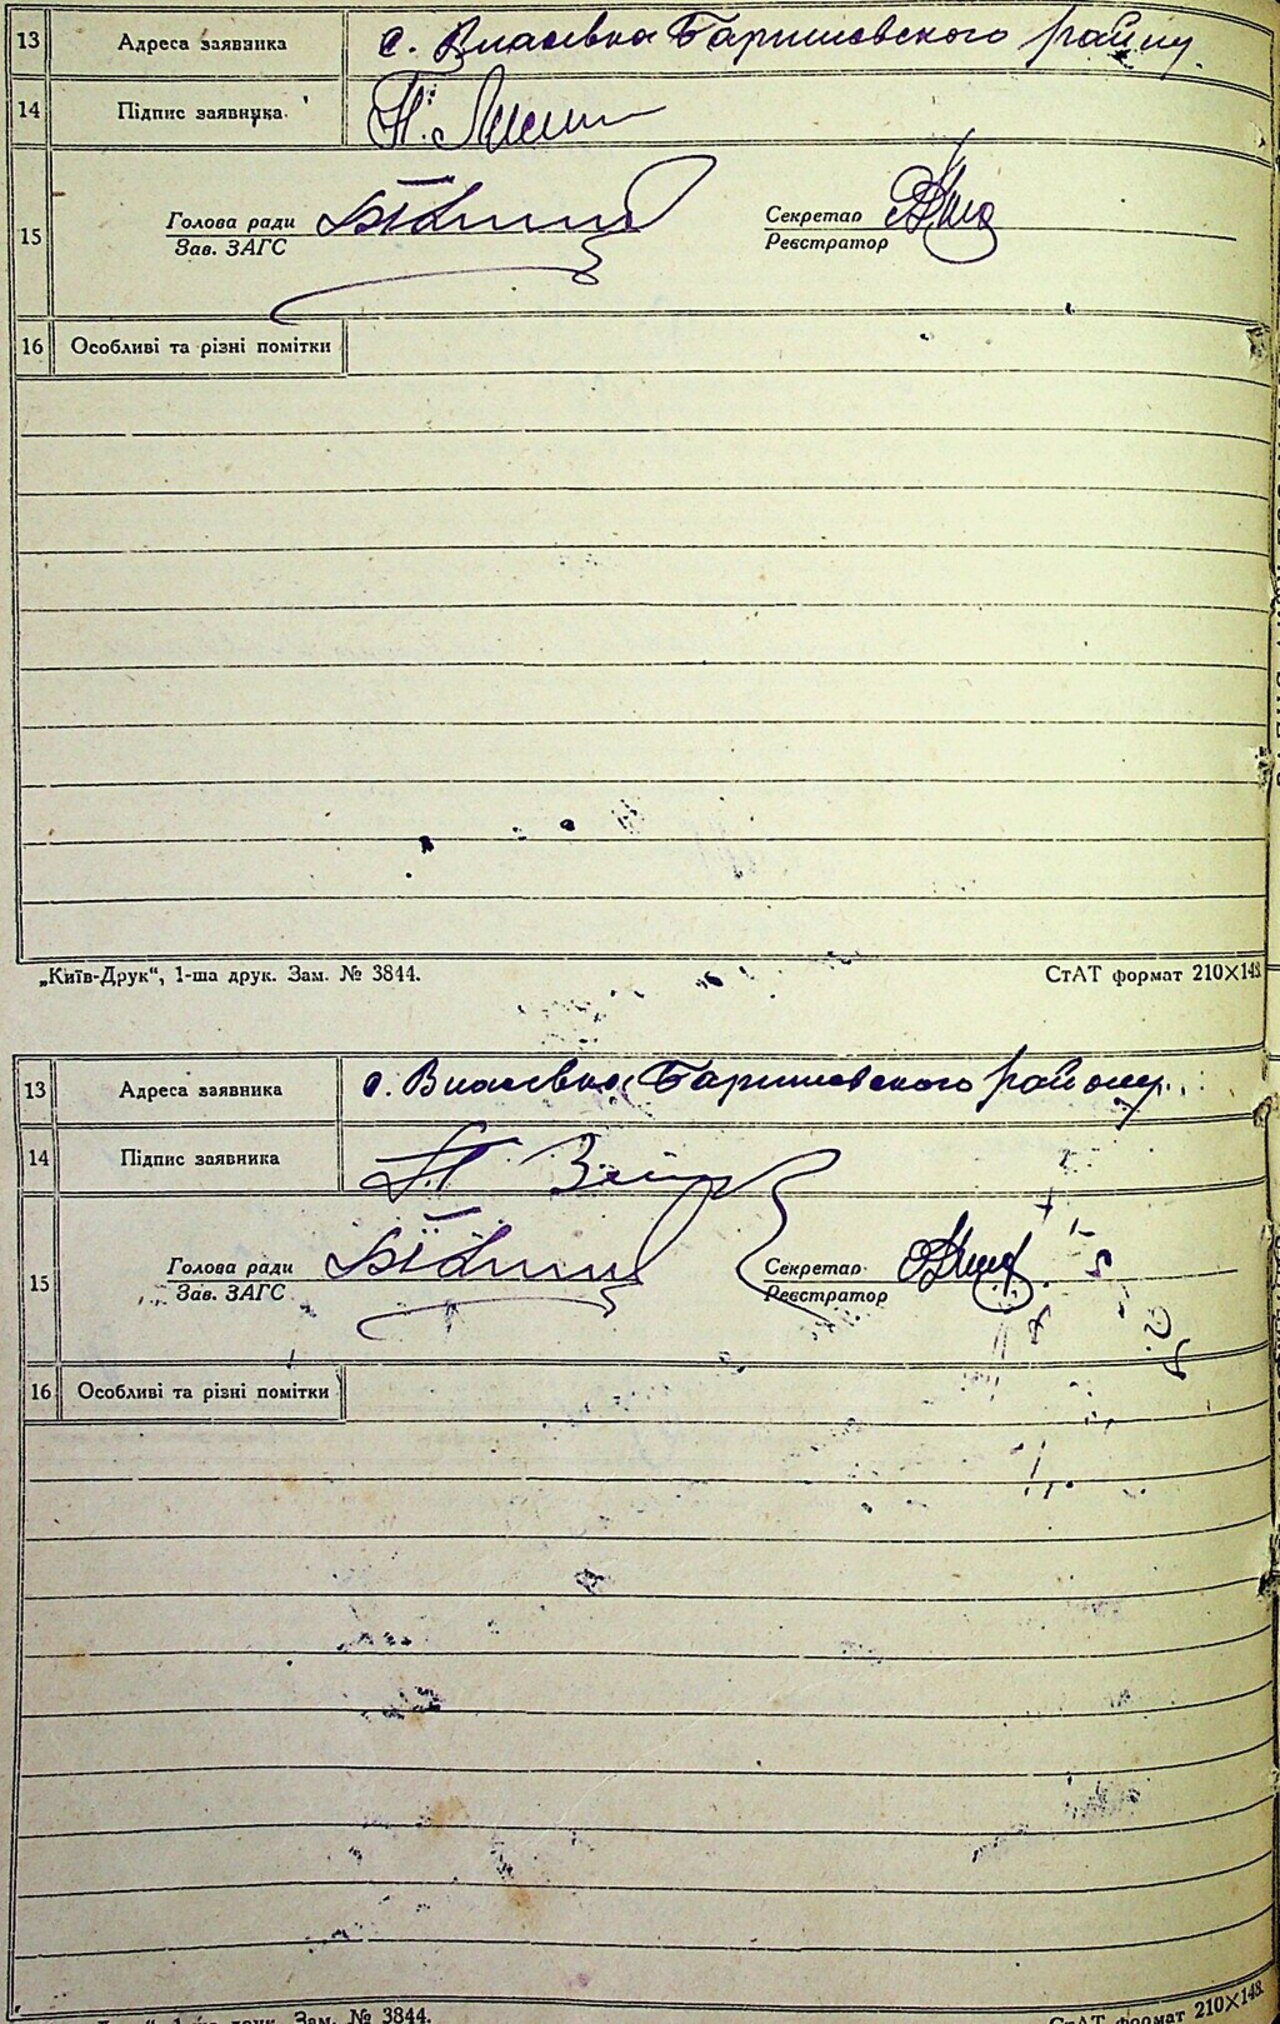 13 Адреса заявника с. Власівка Баришевского району.
14 Підпис заявника
15 Голова ради Секретар
Зав. ЗАГС Реєстратор
16 Особливі та різні помітки
„Київ-Друк“, 1-ша друк. Зам. № 3844. СтАТ формат 210×148.
13 Адреса заявника с. Власівка, Баришевского району.
14 Підпис заявника
15 Голова ради Секретар
Зав. ЗАГС Реєстратор
16 Особливі та різні помітки
1-ша друк. Зам. № 3844. СтАТ формат 210×148.